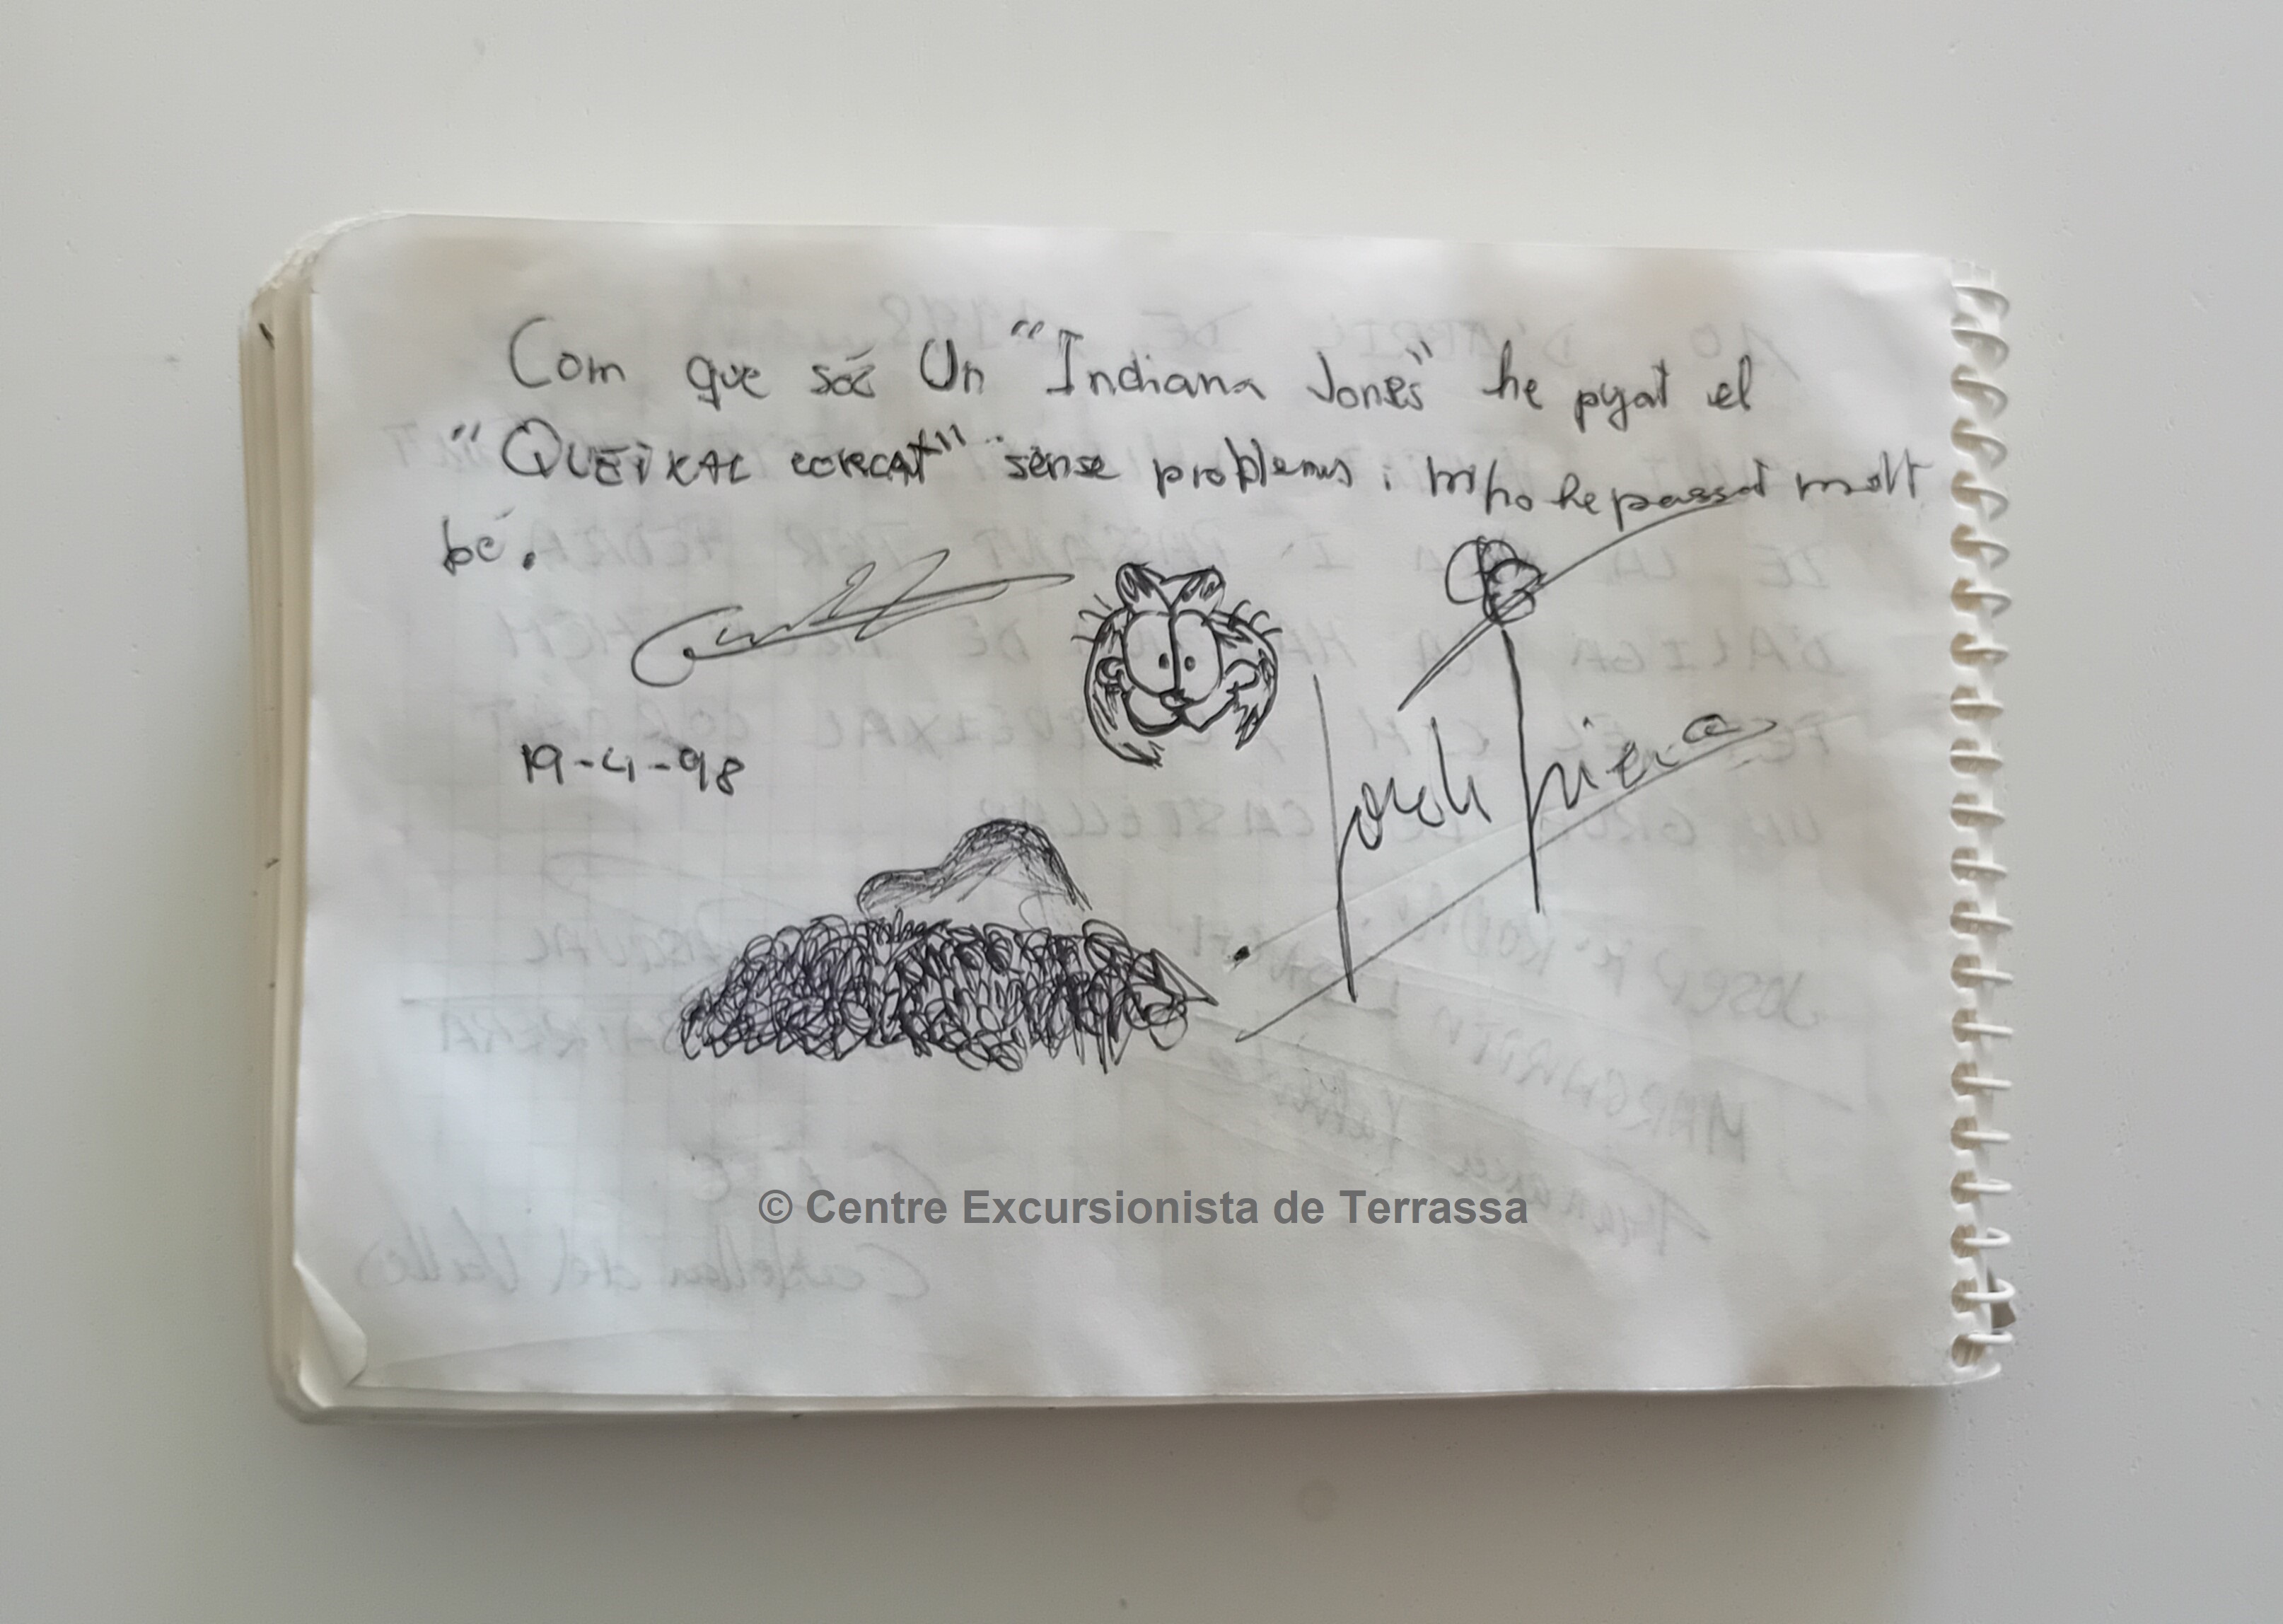 Com que sóc Un "Indiana Jones" he pujat el
"QUEIXAL corcat" sense problemes i m'ho he passat molt
bé.
19-4-98
Jordi
© Centre Excursionista de Terrassa